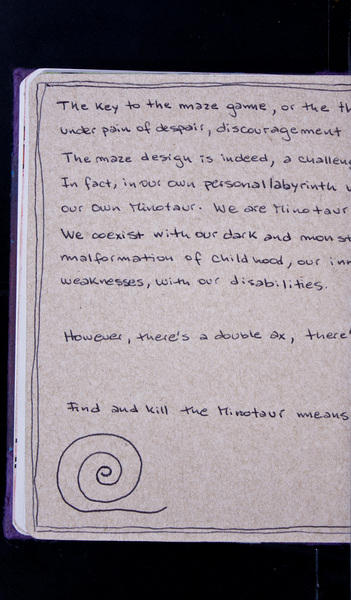 The key to the maze game, or the th
under pain of despair, discouragement
The maze design is indeed, a challen
In fact, in our own personal labyrinth
our own Minotaur. We are Minotaur
We coexist with our dark and monst
malformation of childhood, our inn
weaknesses, with our disabilities.
However, there's a double ax, there'
Find and kill the Minotaur means